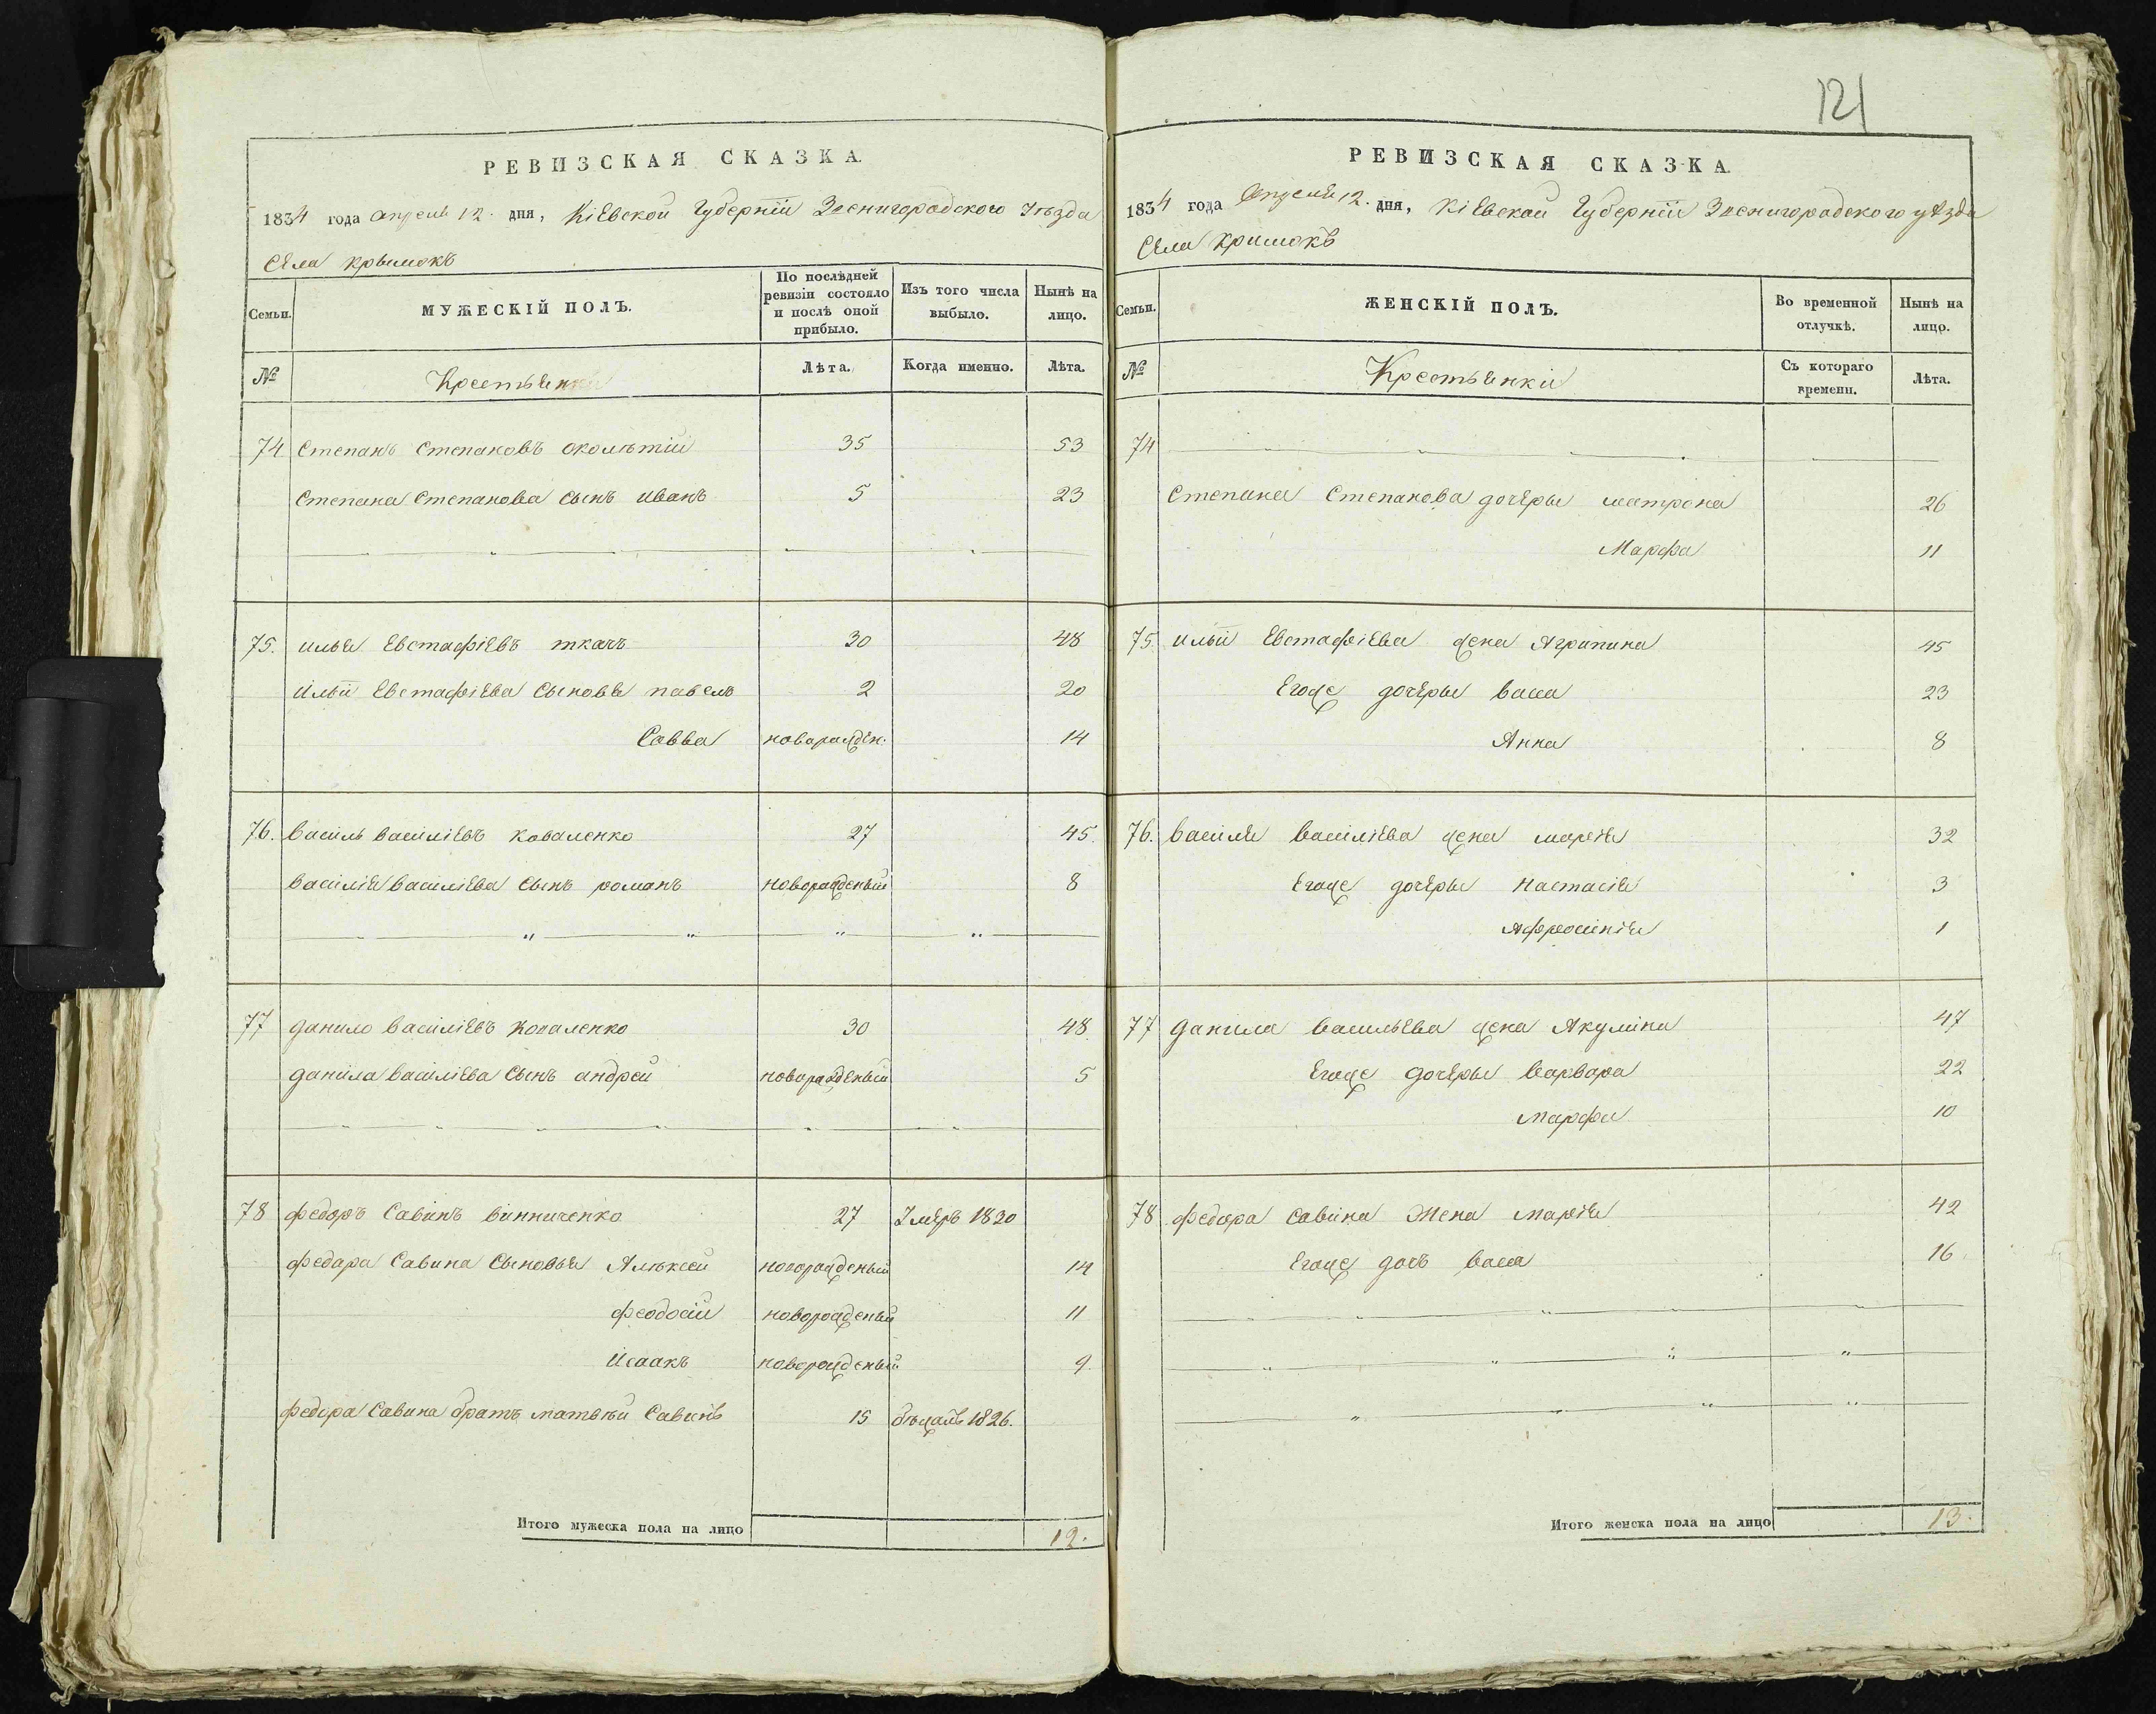 121
РЕВИЗСКАЯ СКАЗКА.
1834 года апреля 12. дня, Кіевской Губерніи Звенигородского Уезда
Села Крымокъ
Семьи.
МУЖЕСКІЙ ПОЛЪ.
По послѣдней ревизіи состояло и послѣ оной прибыло.
Изъ того числа выбыло.
Нынѣ на лицо.
№
Крестьянки
Лѣта.
Когда именно.
Лѣта.
74 Степанъ Степановъ 35 53
Степана Степанова Сынъ иванъ 5 23
75. илья Евстафіевъ ткачъ 30 48
Ильи Евстафіева Сыновья павелъ 2 20
Савва новорожден. 14
76. василь василіевъ коваленко 27 45.
василія василіева Сынъ романъ новорожденый 8
77 данило василіевъ коваленко 30 48.
данила василіева Сынъ андрей новорожденый 5
78 федоръ Савинъ винниченко 27 Умеръ 1830
федора Савина Сыновья Алексей новорожденый 14
феодосій новорожденый 11
Исаакъ новорожденый 9.
федора Савина братъ матвей Савинъ 15 бежалъ 1826.
Итого мужеска пола на лицо 12.
РЕВИЗСКАЯ СКАЗКА.
1834 года Апреля 12. дня, Кіевской Губерніи Звенигородского уезда
Села Кримокъ
Семьи.
ЖЕНСКІЙ ПОЛЪ.
Во временной отлучкѣ.
Нынѣ на лицо.
№
Крестьянки
Съ котораго времени.
Лѣта.
74
Степана Степанова дочеры матрона 26
Марфа 11
75. ильи Евстафіева жена Агрипина 45
Егоже дочеры васа 23
Анна 8
76. василя василіева жена марія 32
Егоже дочеры настасія 3
Афросинія 1
77 данила васильева жена Акулина 47
Егоже дочеры варвара 22
марфа 10
78 федора савина Жена марія 42
Егоже дочъ васа 16.
Итого женска пола на лицо 13.